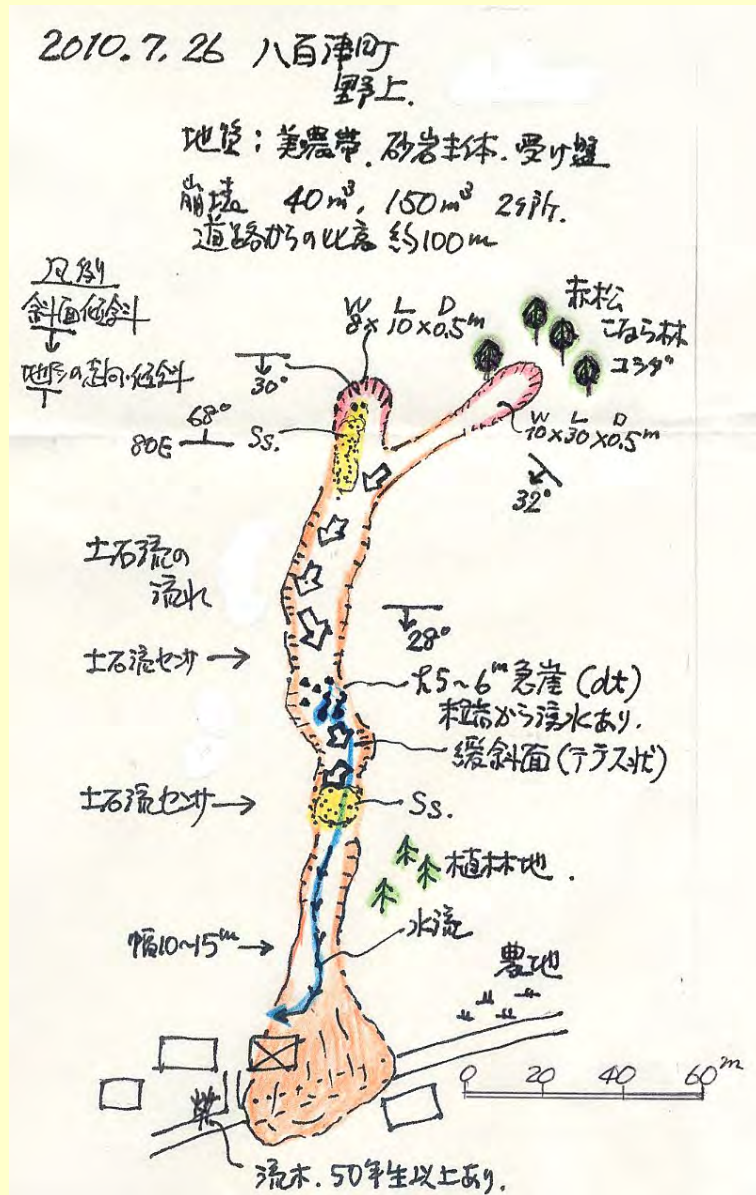 2010.7.26 八百津町
野上.
地質：美濃帯．砂岩主体．受け盤
崩壊 40m³, 150m³ 2ヶ所.
道路からの比高 約100m
凡例
斜面傾斜
地形の走向・傾斜
W L D
8×10×0.5m
赤松
こなら林
コシダ
30°
68°
80E
Ss.
W L D
10×30×0.5m
32°
土石流の
流れ
28°
土石流センサ→
高5～6m急崖(dt)
末端から湧水あり.
緩斜面(テラス状)
土石流センサ→
Ss.
植林地.
幅10～15m→
水流
農地
0 20 40 60m
流木.50年生以上あり.